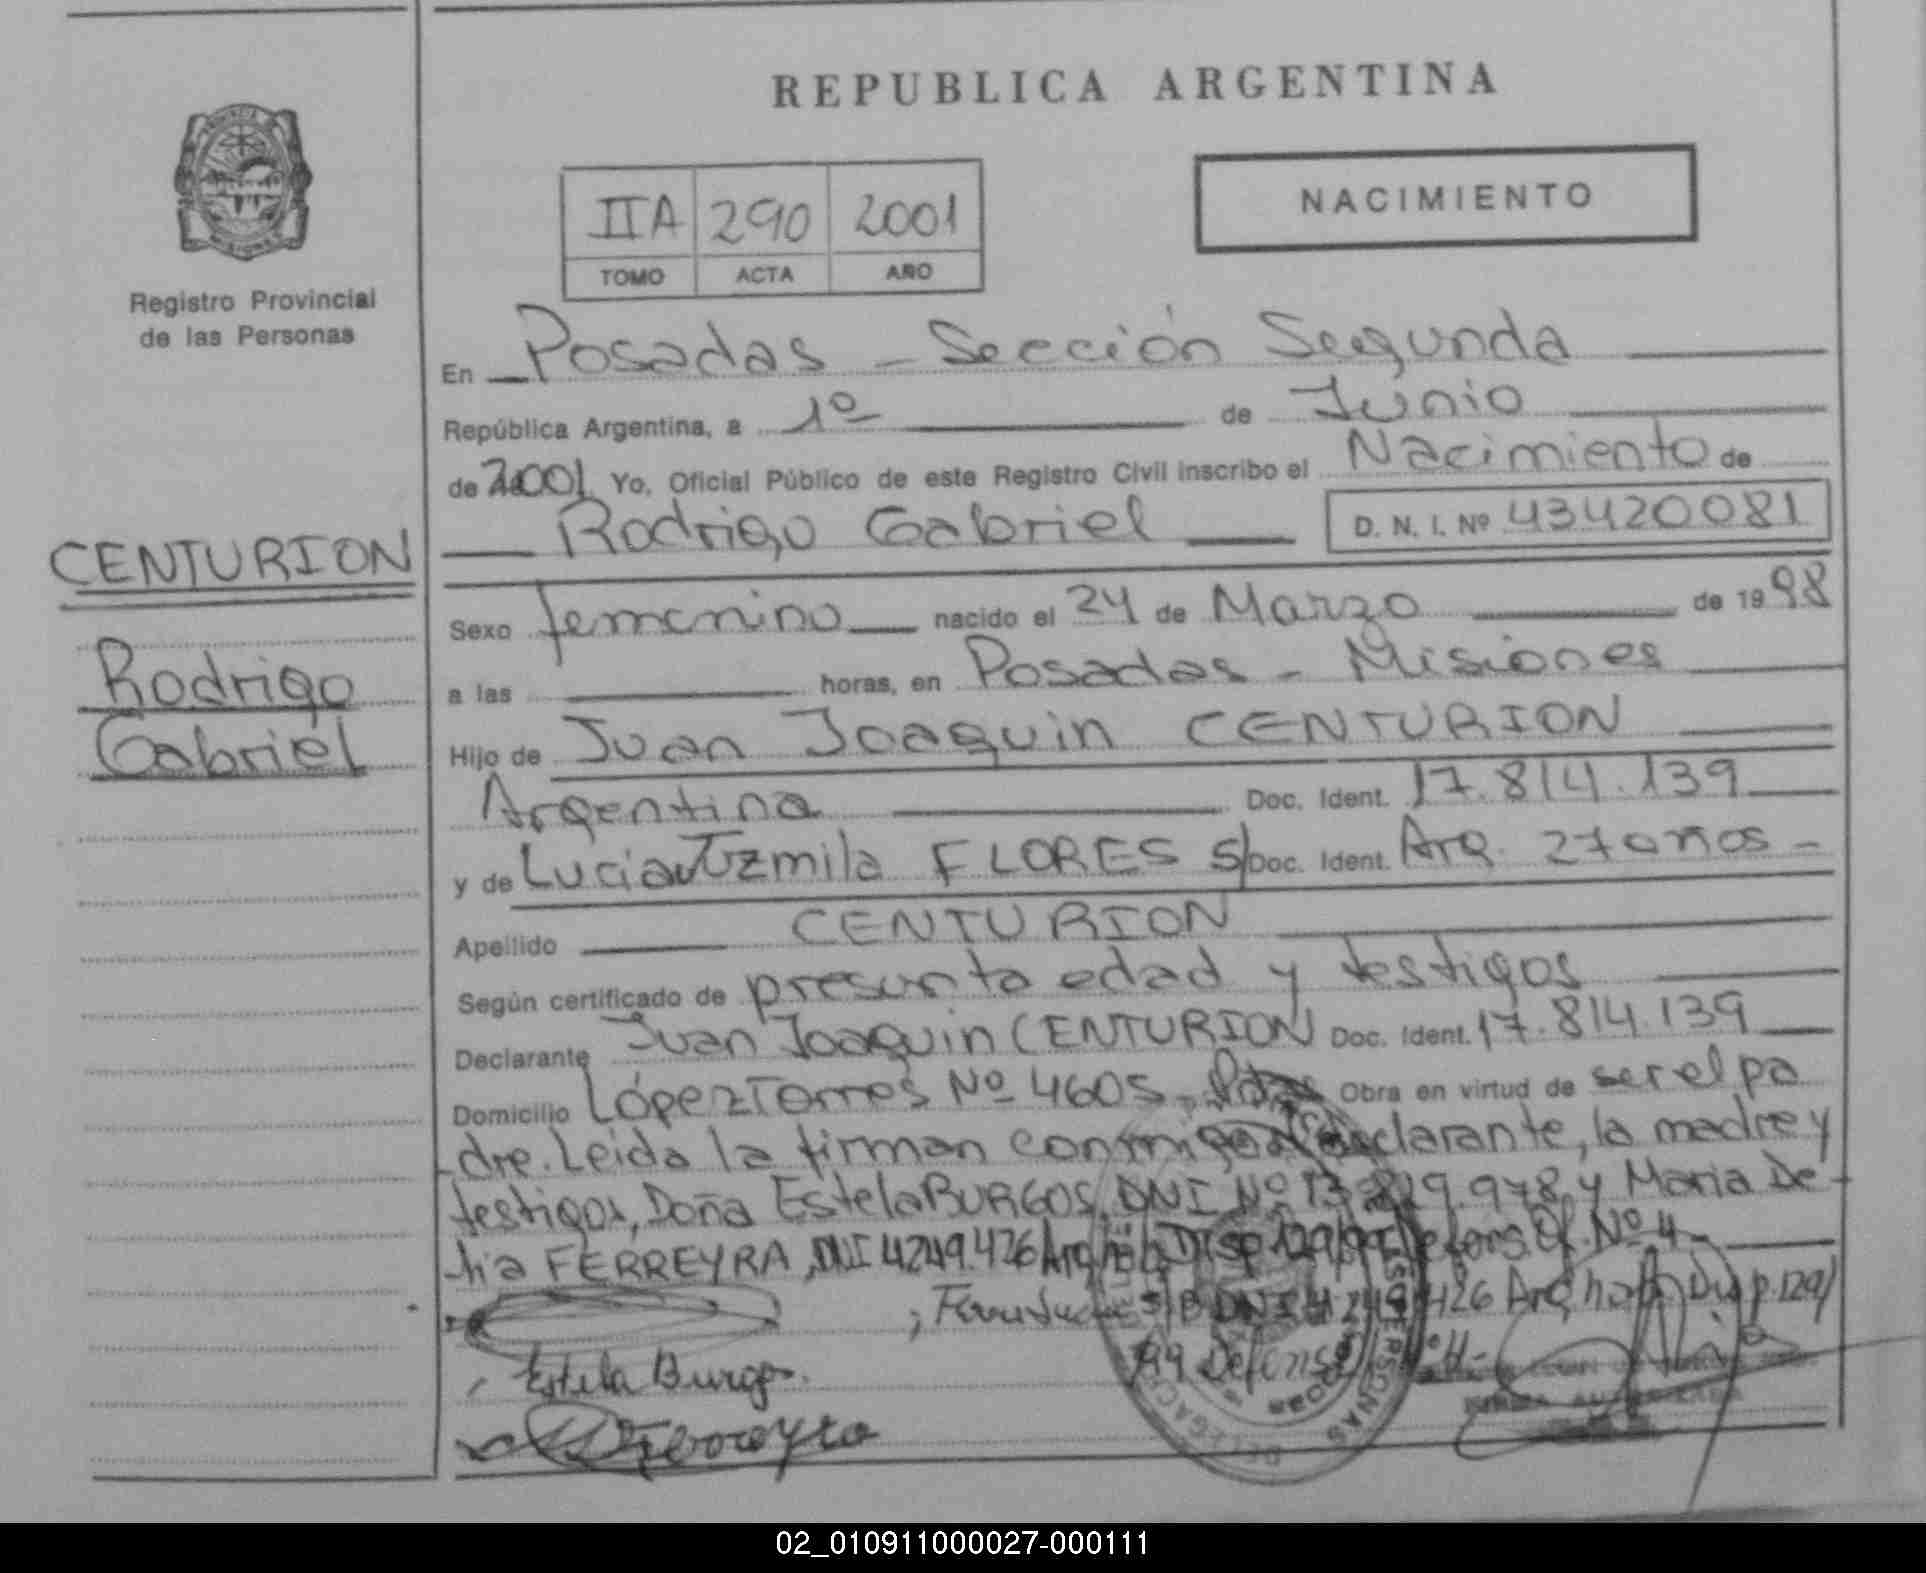 REPUBLICA ARGENTINA
NACIMIENTO
IIA 290 2001
TOMO ACTA AÑO
PROVINCIA DE MISIONES
Registro Provincial
de las Personas
CENTURION
Rodrigo
Gabriel
En Posadas - Sección Segunda
República Argentina, a 1º de Junio
de 2001 Yo, Oficial Público de este Registro Civil inscribo el Nacimiento de
Rodrigo Gabriel D. N. I. Nº 43420081
Sexo femenino nacido el 24 de Marzo de 1998
a las horas, en Posadas - Misiones
Hijo de Juan Joaquin CENTURION
Argentina Doc. Ident. 17.814.139
y de Lucia FLORES s/Doc. Ident. Arg. 27 años -
Apellido CENTURION
Según certificado de presunta edad y testigos
Declarante Juan Joaquin CENTURION Doc. Ident. 17.814.139
Domicilio López Torres Nº 4605 - Pdas Obra en virtud de ser el pa
dre. Leida la firman conmigo declarante, la madre y
testigos, Doña Estela BURGOS, DNI Nº 13.819.978, y Maria De-
lia FERREYRA, DNI 4249.426 Disp 129/99 Defens. Of. Nº 4 -
DNI 4249426 Disp. 129/
99 Defens
Estela Burgos.
Ferreyra
DELEGACION PERSONAS
02_010911000027-000111